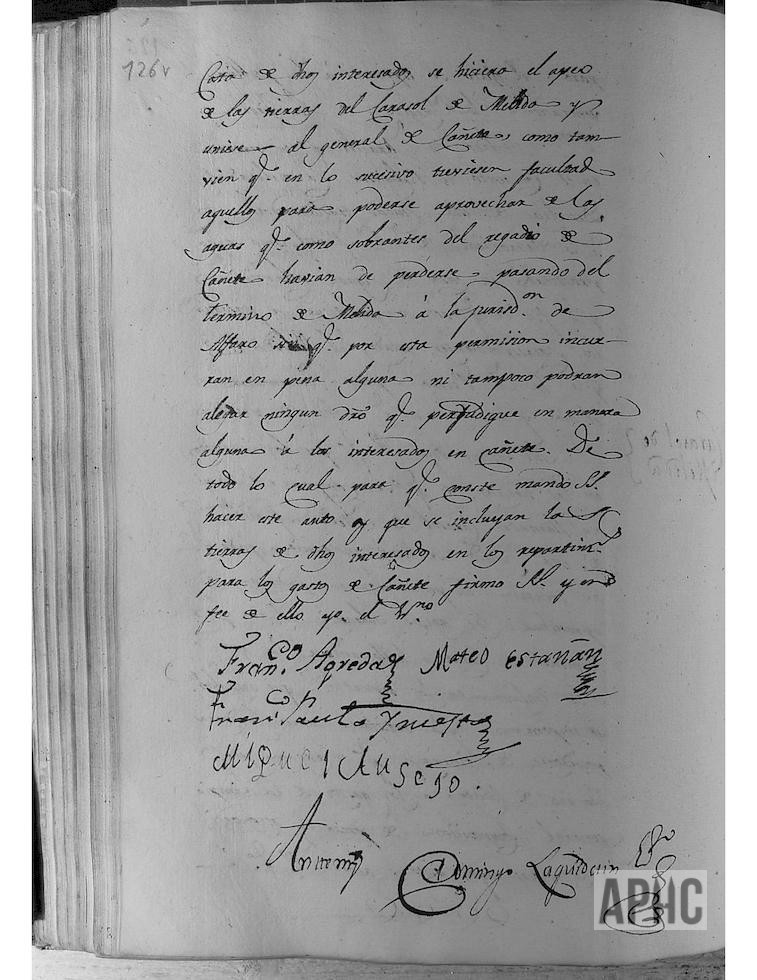 126v
Cata de dhos interesados se hiciera el apeo
de las tierras del Carasol de Melida y
uniese al general de Cañete, como tam-
vien q.e en lo sucesivo tuviesen facultad
aquellos para poderse aprovechar de las
aguas q.e como sobrantes del regadio de
Cañete havian de perderse pasando del
termino de Melida á la jurisd.on de
Alfaro sin q.e por esta permision incur-
ran en pena alguna ni tampoco podran
alegar ningun dro q.e perjudique en manera
alguna á los interesados en Cañete. De
todo lo cual para q.e conste mando SS.
hacer este auto y que se incluyan las
tierras de dhos interesados en los repartim.s
para los gastos de Cañete firmo SS. y en
fee de ello yo el Ess.no
Fran.co Agreda Mateo Estañan
Fran.co Paula
Miguel Ausejo.
Antemi Domingo
Carasol de
Melida
APHC